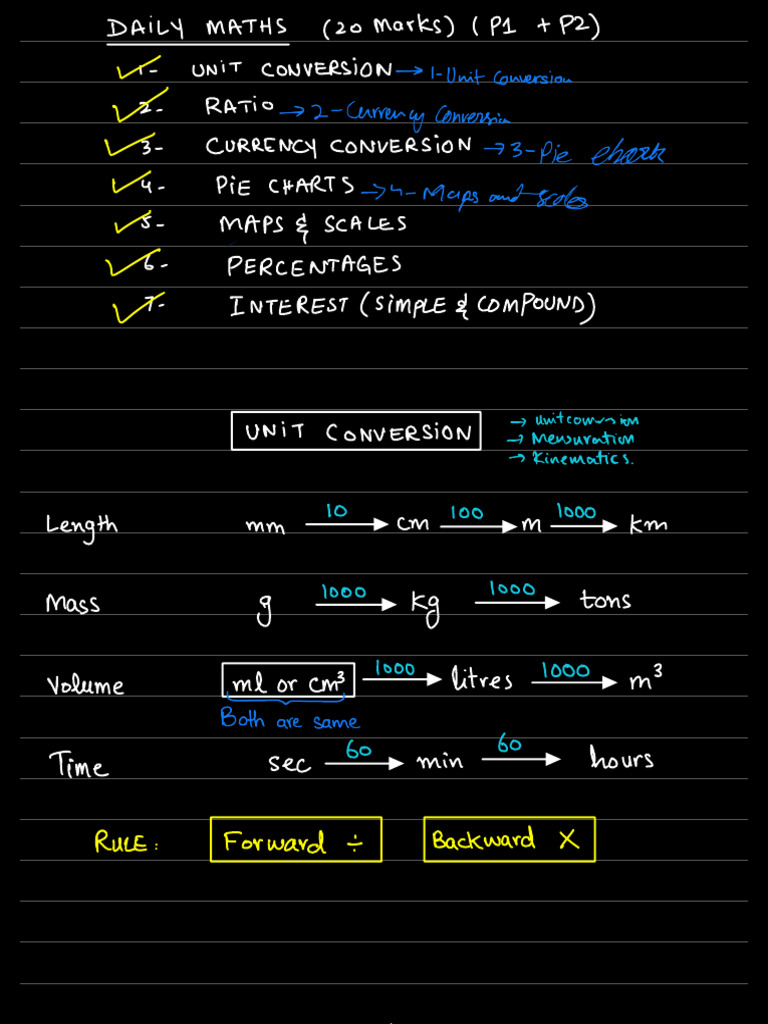 DAILY MATHS (20 Marks) (P1 + P2)
1- UNIT CONVERSION → 1-Unit Conversion
2- RATIO → 2-Currency Conversion
3- CURRENCY CONVERSION → 3-Pie
4- PIE CHARTS → 4-Maps and scales
5- MAPS & SCALES
6- PERCENTAGES
7- INTEREST (SIMPLE & COMPOUND)
UNIT CONVERSION
→ Unit conversion
→ Mensuration
→ Kinematics.
Length mm 10 → cm 100 → m 1000 → km
Mass g 1000 → kg 1000 → tons
Volume ml or cm³ 1000 → litres 1000 → m³
Both are same
Time sec 60 → min 60 → hours
RULE: Forward ÷ Backward X